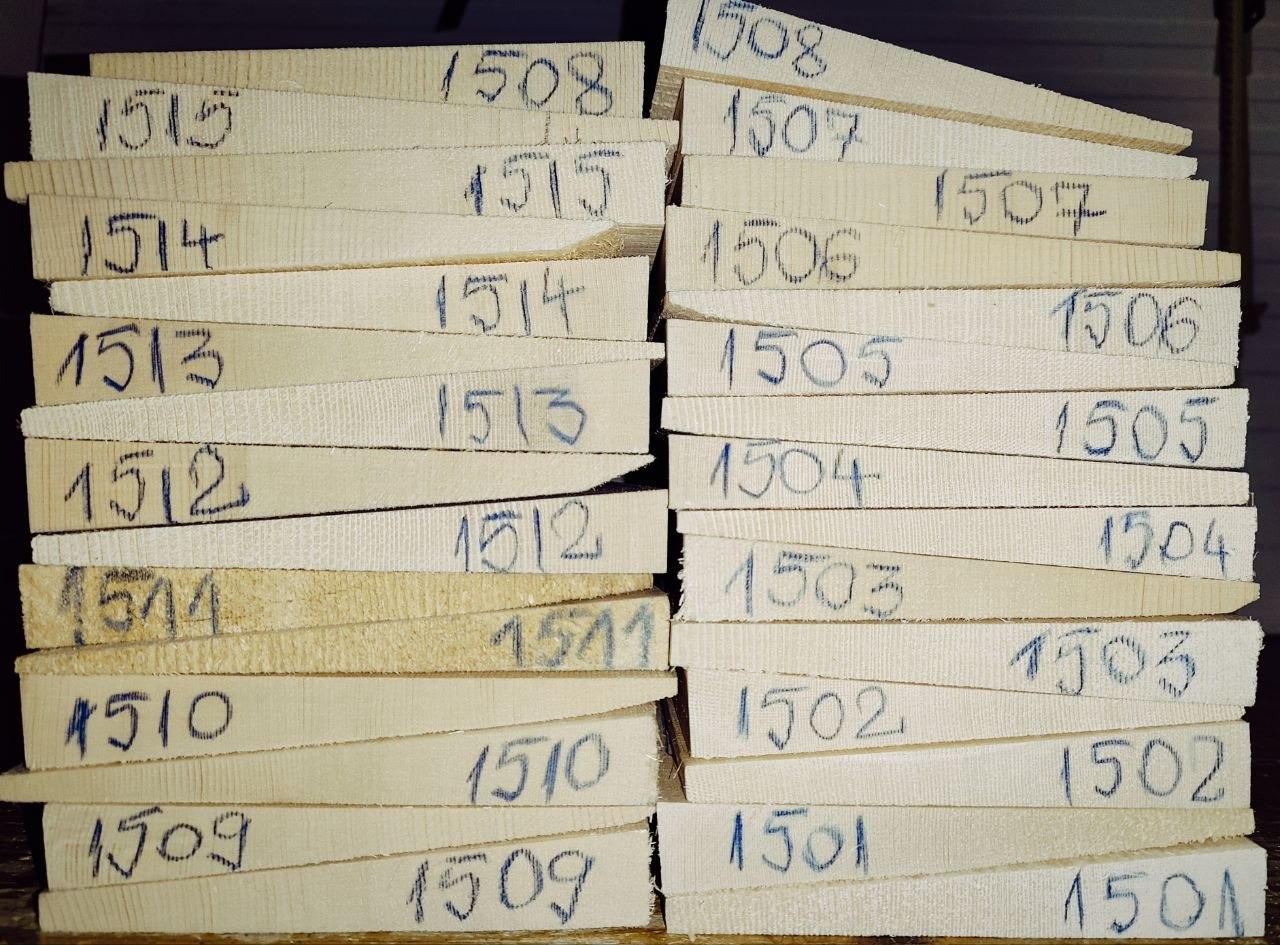 1508
1515
1515
1514
1514
1513
1513
1512
1512
1511
1511
1510
1510
1509
1509
1508
1507
1507
1506
1506
1505
1505
1504
1504
1503
1503
1502
1502
1501
1501